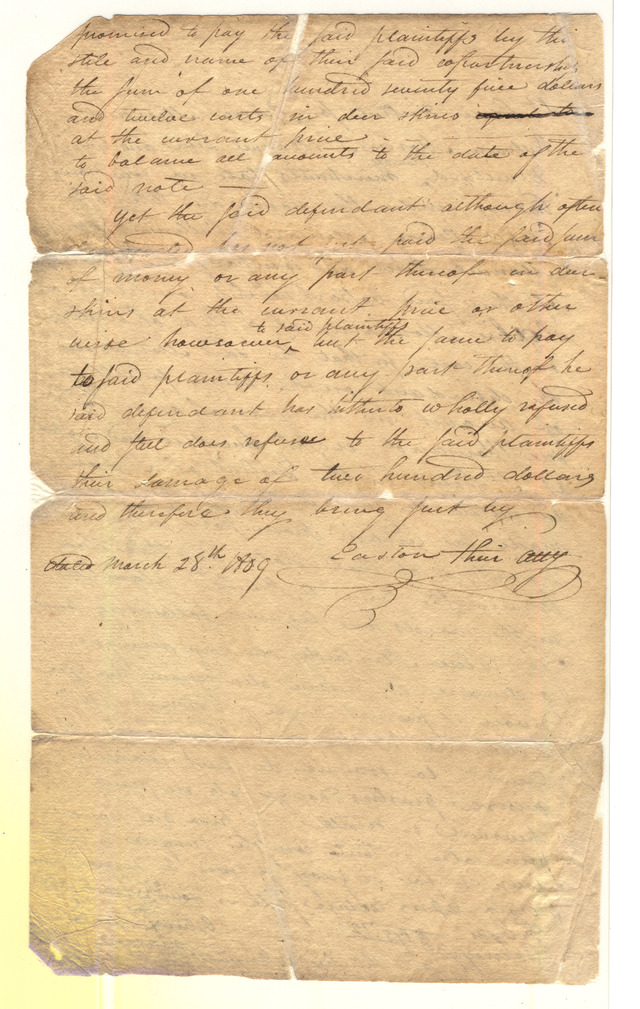 promised to pay the said plaintiffs by the
stile and name of their said copartnership
the sum of one hundred seventy five dollars
and twelve cents in deer skins
at the currant price
to balance all amounts to the date of the
said note —
Yet the said defendant although often
has not yet paid the said sum
of money or any part thereof in deer
skins at the currant price or other
wise howsoever, to said plaintiffs but the same to pay
to said plaintiffs or any part thereof he
said defendant has hitherto wholly refused
and still does refuse to the said plaintiffs
their damage of two hundred dollars
and therefore they bring suit by
dated March 28th 1809 Easton their atty